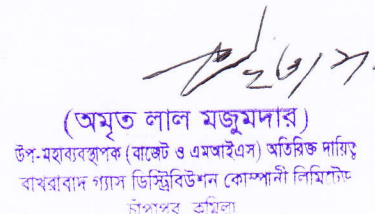 (অমৃত লাল মজুমদার)
উপ-মহাব্যবস্থাপক (বাজেট ও এমআইএস) অতিরিক্ত দায়িত্ব
বাখরাবাদ গ্যাস ডিস্ট্রিবিউশন কোম্পানী লিমিটেড
চাঁপাপুর, কুমিল্লা